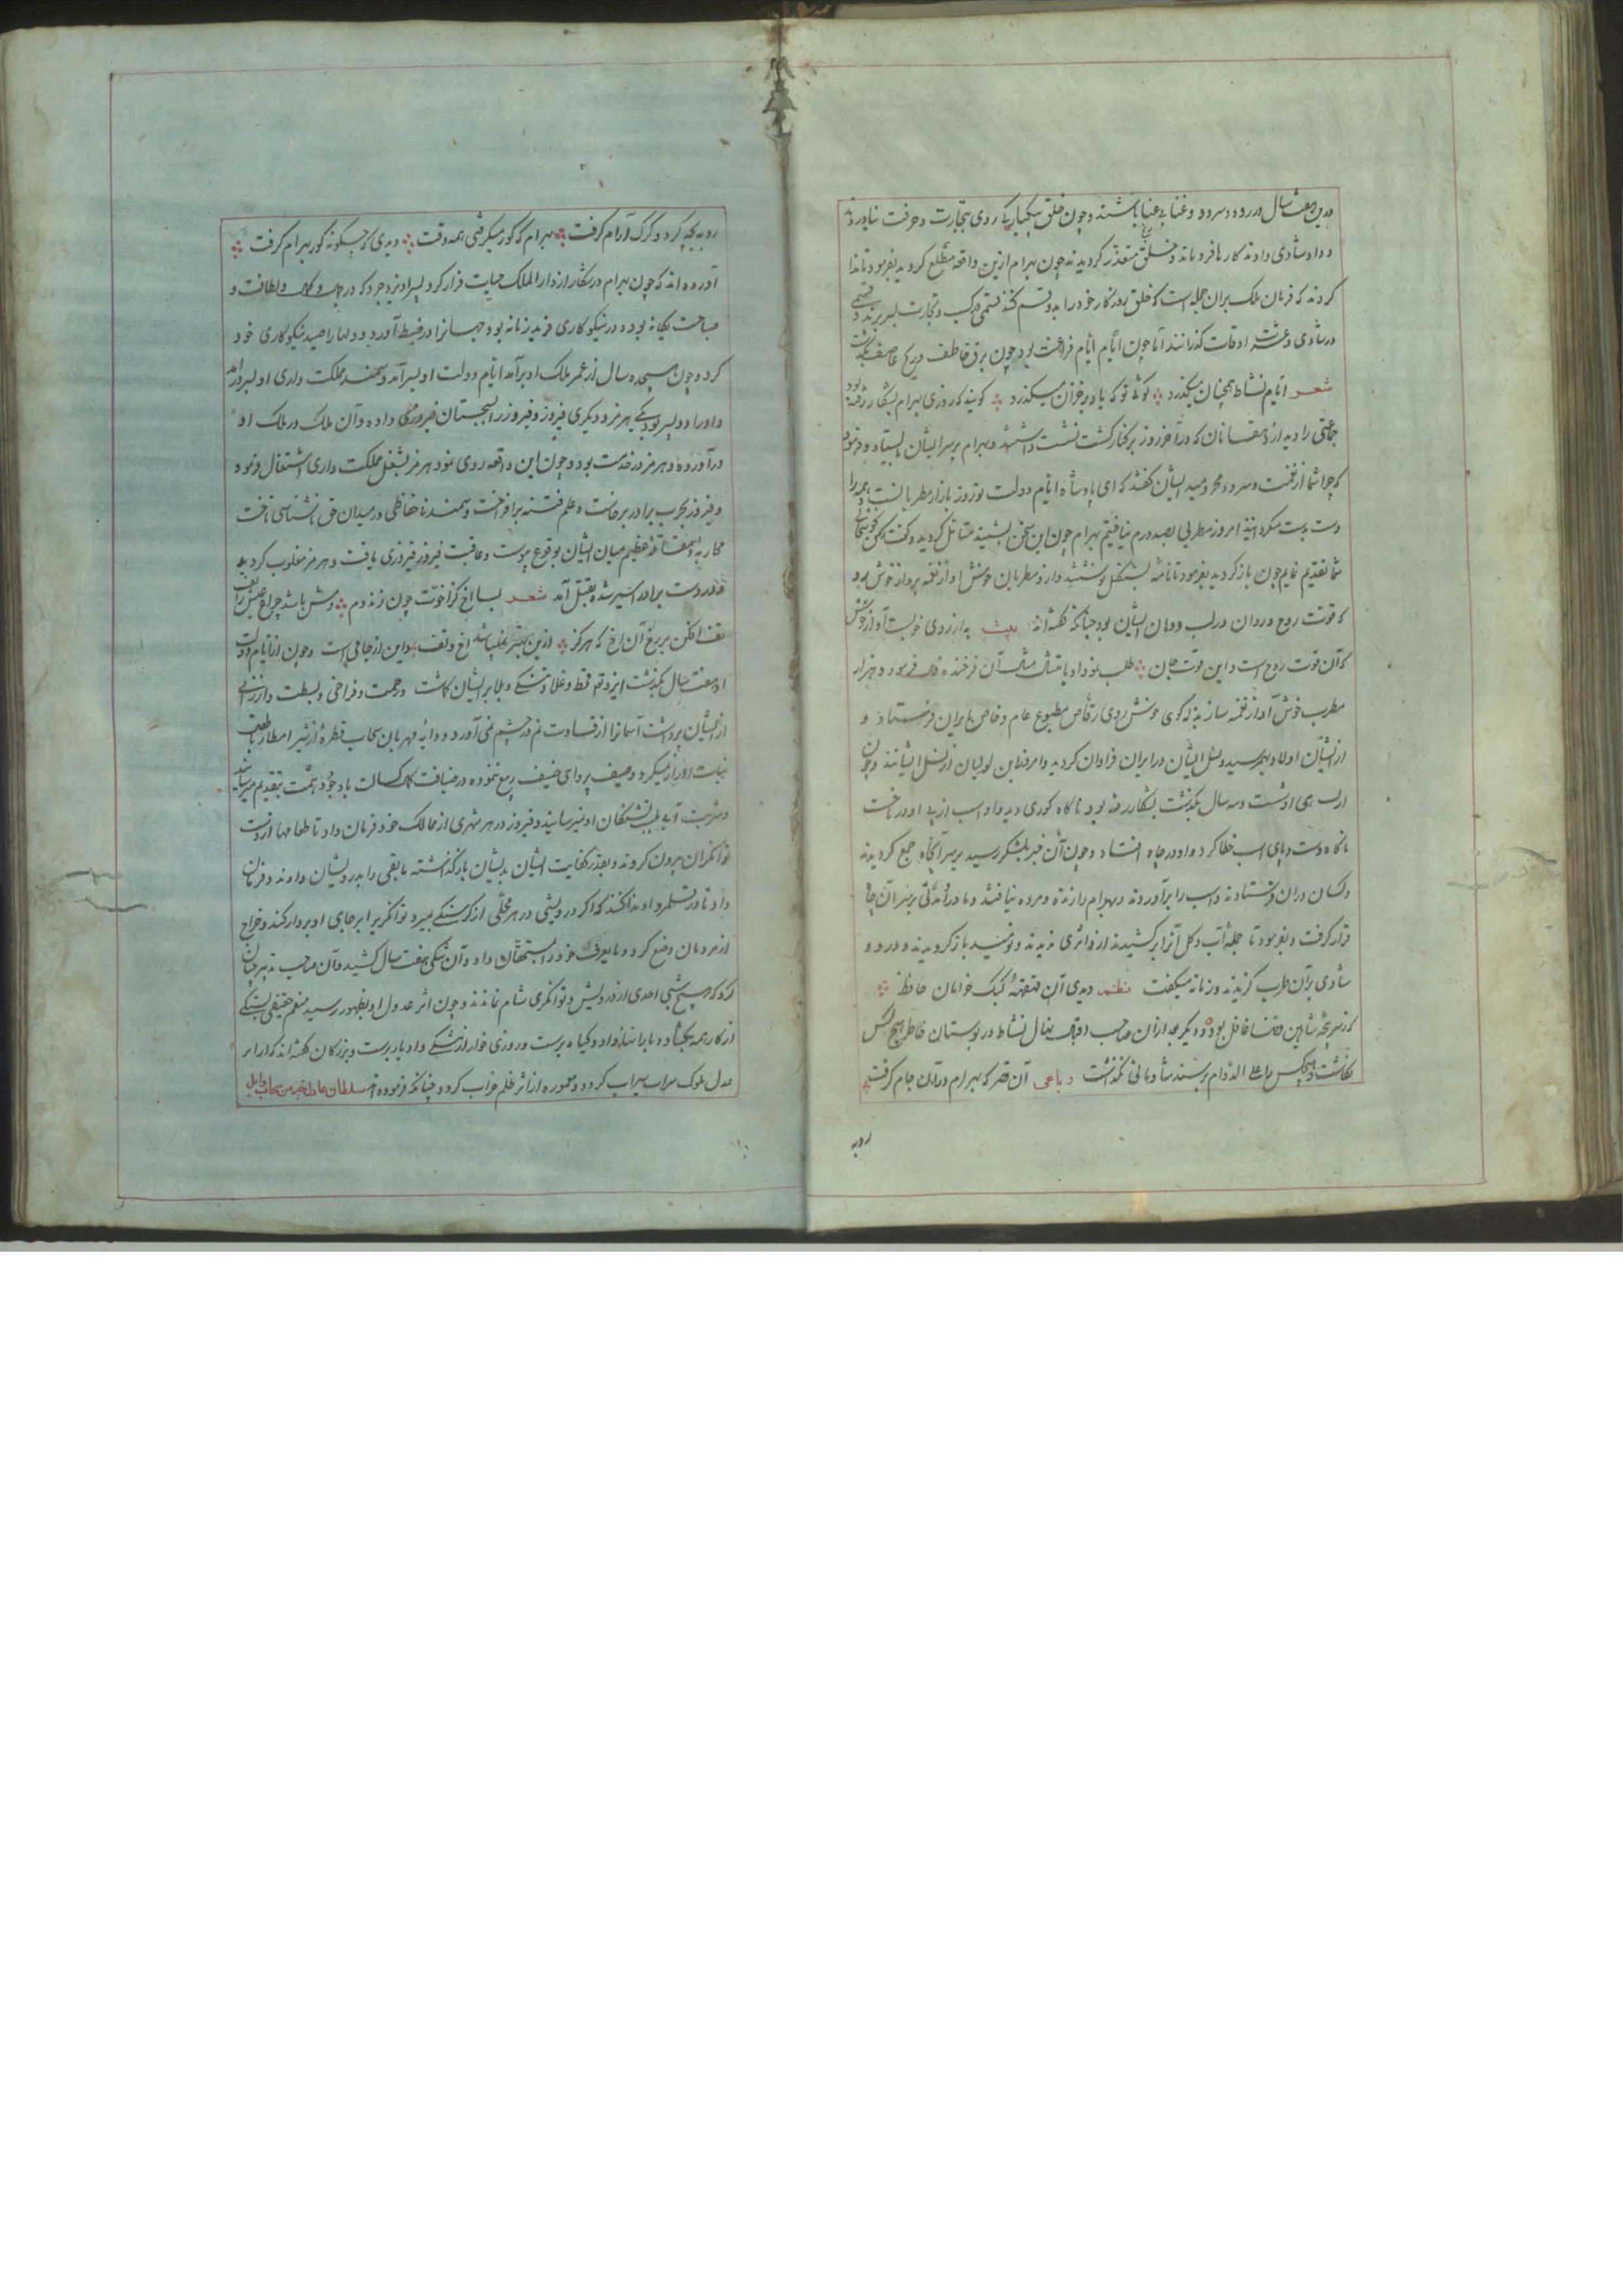 درین هفت سال در رود و سرود و غنا بی عنا باشند و چون خلق بیکبارگی روی بتجارت و حرفت نیاوردند
و داد شادی دادند کارها فرو ماند و خلق متعذر گردیدند چون بهرام ازین واقعه مطلع گردید بفرمود تا ندا
کردند که فرمان ملک بران جمله است که خلق روزگار خود را بدو قسم کنند قسمی در کسب و تجارت بسر برند و قسمی
در شادی و عشرت اوقات گذرانند اما چون ایام ایام فراغت بود چون برق خاطف و ریح عاصف بگذشت
شعر ایام نشاط همچنان میگذرد گوئی تو که باد بر خزان میگذرد گویند که روزی بهرام بشکار رفته بود
جماعتی را دید از دهقانان که در آخر روز بر کنار کشت نشست داشتند و بهرام بر سر ایشان بایستاد و فرمود
که چرا شما از نغمت و سرود محرومید ایشان گفتند که ای پادشاه ایام دولت تو روز بازار مطربانست و همه را
دست بدست میگردانند امروز مطربی بصد درم نیافتیم بهرام چون این سخن بشنید متأمل گردید و گفت
شما تقدیم نمایم چون باز گردید بفرمود تا نامه بشنکل نوشتند و ازو مطربان خوش آواز نغمه پرداز خوش رو
که قوت روح و روان در لب و دهان ایشان بود چنانکه گفته‌اند بیت به از روی خوبست آواز خوش
که آن قوت روح است و این قوت جان طلب نمود او بامتثال مثال آن فرخنده فال فرمود و هزار
مطرب خوش آواز نغمه ساز بذله گوی خوش روی رقاص مطبوع عام و خاص بایران فرستاد و
از ایشان اولاد بهم رسید و نسل ایشان در ایران فراوان گردید و امروز این لولیان از نسل ایشانند و چون
از پادشاهی او شصت و سه سال بگذشت بشکار رفته بود ناگاه گوری دید و اسب از پی او در تاخت
ناگاه دست و پای اسب خطا کرد و او در چاه افتاد و چون آن خبر بلشکر رسید بر سر آنچاه جمع گردیدند
و کسان دران فرستادند و اسب را برآوردند و بهرام را زنده و مرده نیافتند و مادر او مدتی بر سر آن چاه
قرار گرفت و بفرمود تا جمله آب و گل آنرا برکشیدند ازو اثری ندیدند و نومید باز گردیدند و درد و
شادی بر آن طرب گزیدند و زمانه میگفت نظم دیدی آن قهقهه کبک خرامان حافظ
که ز سرپنجه شاهین قضا غافل بود و دیگر بعد ازان صاحب اقبال نهال نشاط در بوستان خاطر هیچ کس
نکاشت و هیچکس را علی الدوام بر مسند شادمانی نگذاشت رباعی آن قصر که بهرام درو جام گرفت
روبه
روبه بچه کرد و گرگ آرام گرفت بهرام که گور میگرفتی همه وقت دیدی که چگونه گور بهرام گرفت
آورده‌اند که چون بهرام در شکار از دار الملک حیات فرار کرد پسر او یزدجرد که در جمال و کمال و لطافت و
صباحت یگانه بود و در نیکوکاری فرید زمانه بود جهانرا در ضبط آورد و دلها را صید نیکوکاری خود
کرد و چون هیجده سال از عمر ملک او برآمد ایام دولت او بسر آمد و سمند مملکت داری او بسر درآمد
و او را دو پسر بود یکی هرمز و دیگری فیروز و فیروز را سجستان داده و آن ملک در ملک او
درآورده و هرمز در خدمت بود و چون این واقعه روی نمود هرمز بشغل مملکت داری اشتغال نمود و
و فیروز بحرب برادر برخاست و علم فتنه برافراخت و سمند ناحفاظی در میدان حق ناشناسی تاخت
محاربه و مقاتله عظیم میان ایشان بوقوع پیوست و عاقبت فیروز فیروزی یافت و هرمز مغلوب گردید
و در دست برادر اسیر شده بقتل آمد شعر بسا اخ کز اخوت چون زند دم
تف افکن بر رخ آن اخ که هرگز ازین بهتر نمیباشد اخ و تف و این از جامی است و چون از ایام دولت
او هفت سال بگذشت ایزد تعالی قحط و غلا و تنگی و بلا بر ایشان گماشت و رحمت و فراخی و بسطت و ارزانی
از ایشان برداشت آسمانرا از قساوت نم در چشم نمی‌آورد و دایه مهربان سحاب قطره از شیر امطار باطفال
نبات میکرد و صیف پروای ضیف ربیع ننموده در ضیافت کمال کسالت باوجود همت بتقدیم میرسانید
و شربت آبی بلب تشنگان او نمیرسانید و فیروز در هر شهری از ممالک خود فرمان داد تا طعامها از دست
توانگران بیرون کردند و بقدر کفایت ایشان بدیشان باز گذاشته باقی را بدرویشان دادند و فرمان
داد تا در قلمرو او ندا کنند که اگر درویشی در هر محلی از گرسنگی بمیرد توانگریرا بر جای او بردار کند و خراج
از مردمان وضع کرد و ما یعرف خود را بمستحقان داد و آن تنگی هفت سال کشید و آن صاحب تدبیر چنان
کرد که هیچ شبی احدی از درویش و توانگری بی شام نماندند و چون اثر عدل او بظهور رسید منعم حقیقی بستگی
از کار همه بگشاد و بارانها داد و گیاه برست و روزی خوار از تنگی و ادبار برست و بزرگان گفته‌اند که از ابر
عدل ملوک سراب سیراب گردد و معموره از اثر ظلم خراب گردد چنانکه فرموده‌اند سلطان عادل خیر من سحاب وابل